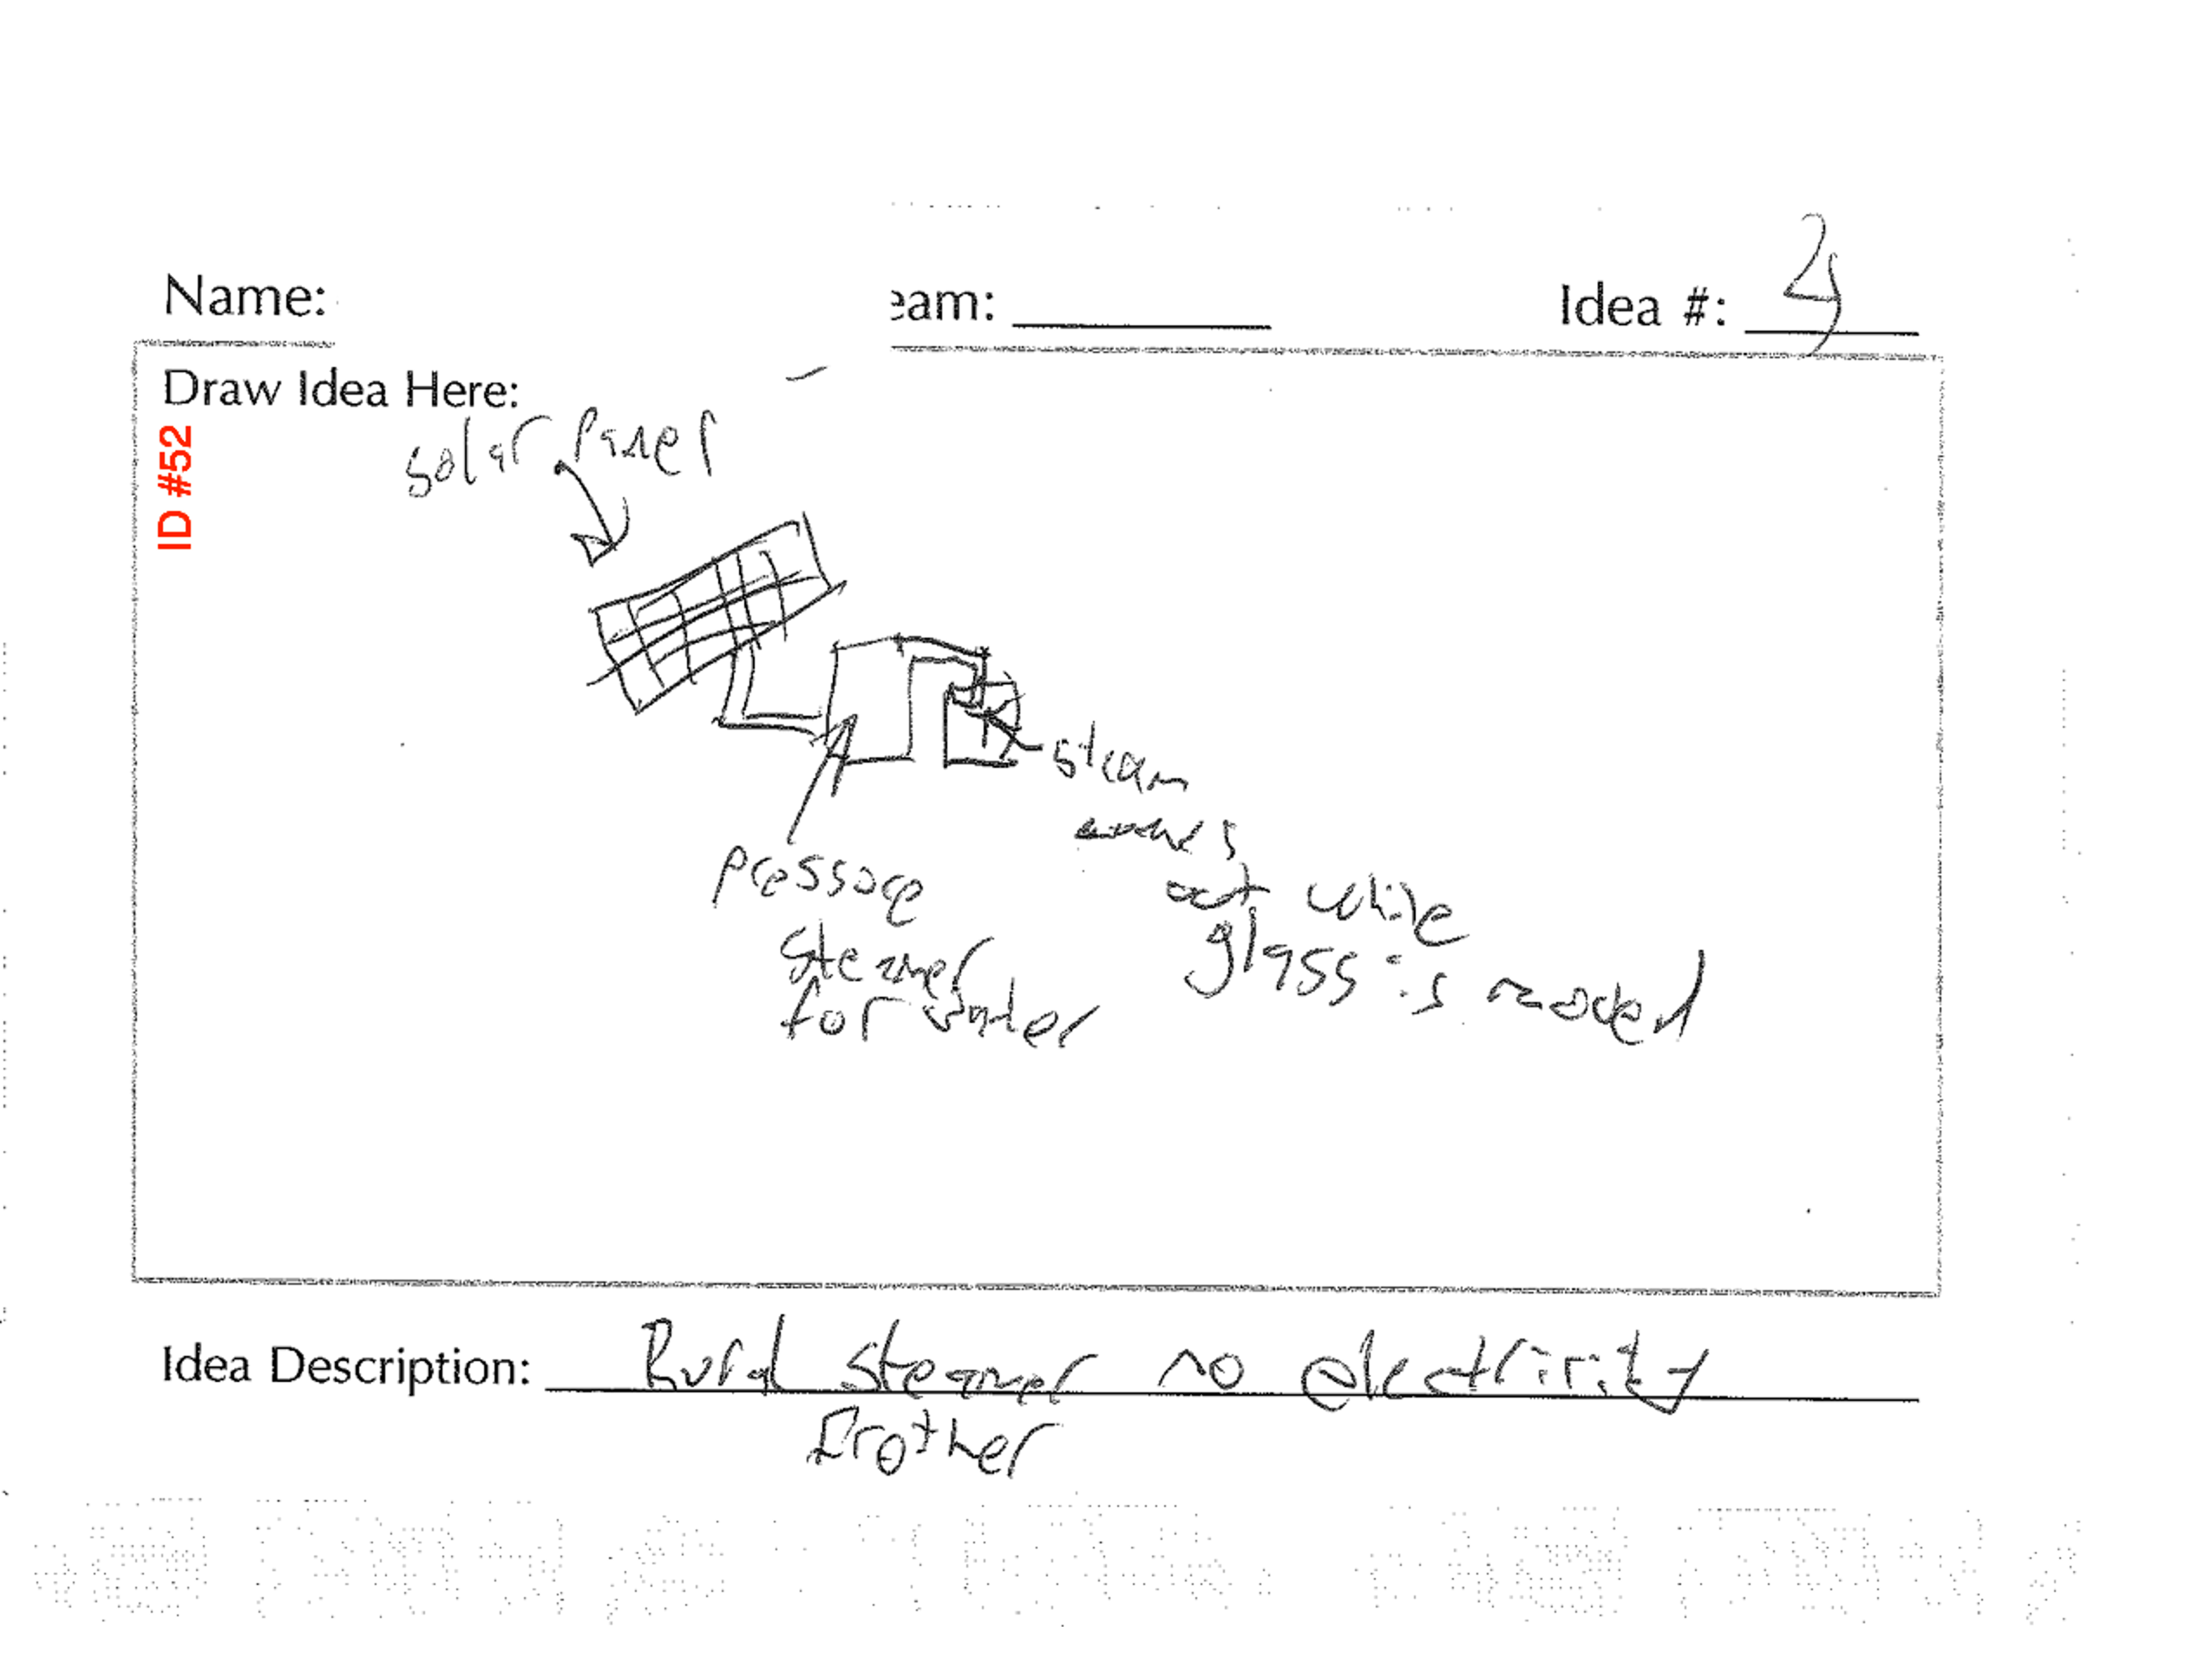 Name:
eam:
Idea #:
Draw Idea Here:
ID #52
solar Panel
steam
out while
glass is moved
pressure
steamer
for
Idea Description: Rural steamer no electricity
frother